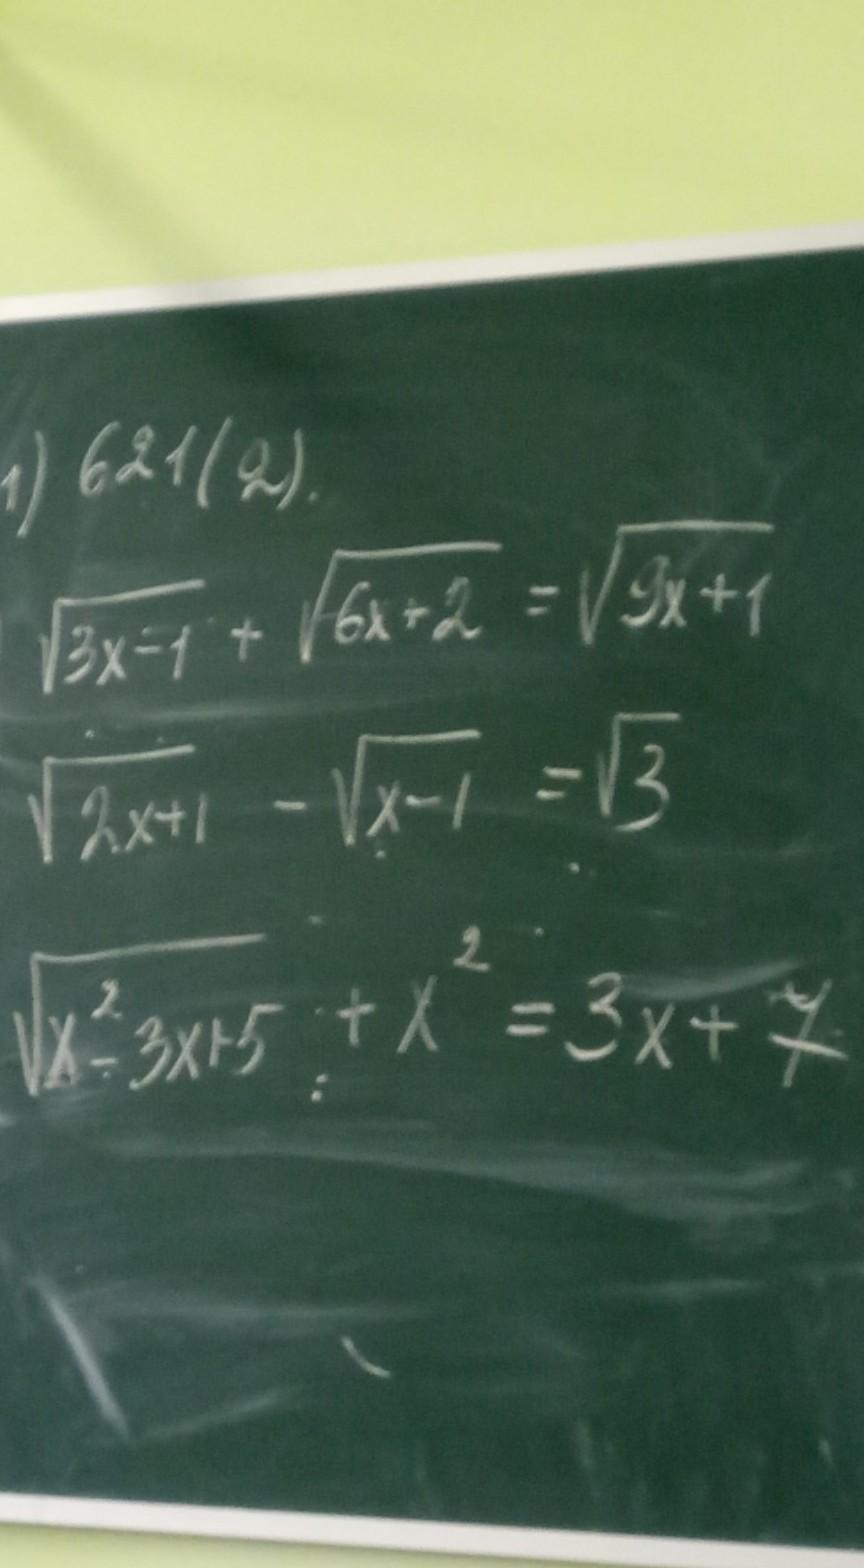 1) 621(2).
√3x-1 + √6x+2 = √9x+1
√2x+1 - √x-1 = √3
√x²-3x+5 + x² = 3x+7